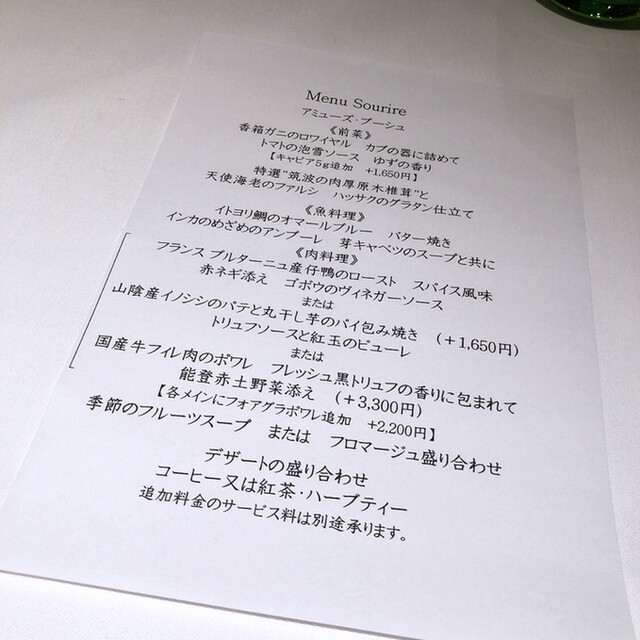 Menu Sourire
アミューズ・ブーシュ
《前菜》
香箱ガニのロワイヤル カブの器に詰めて
トマトの泡雪ソース ゆずの香り
【キャビア5g追加 +1,650円】
特選"筑波の肉厚原木椎茸"と
天使海老のファルシ ハッサクのグラタン仕立て
《魚料理》
イトヨリ鯛のオマールブルー バター焼き
インカのめざめのアンブーレ 芽キャベツのスープと共に
《肉料理》
フランス ブルターニュ産仔鴨のロースト スパイス風味
赤ネギ添え ゴボウのヴィネガーソース
または
山陰産イノシシのパテと丸干し芋のパイ包み焼き (+1,650円)
トリュフソースと紅玉のピューレ
または
国産牛フィレ肉のポワレ フレッシュ黒トリュフの香りに包まれて
能登赤土野菜添え (+3,300円)
【各メインにフォアグラポワレ追加 +2,200円】
季節のフルーツスープ または フロマージュ盛り合わせ
デザートの盛り合わせ
コーヒー又は紅茶・ハーブティー
追加料金のサービス料は別途承ります。